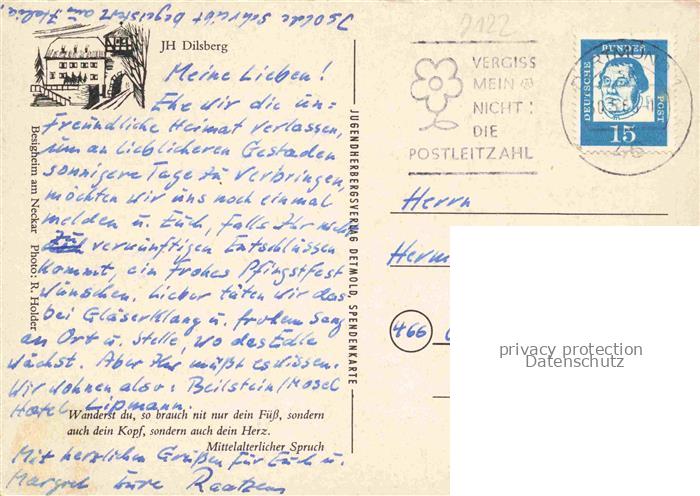 Isolde schreibt begeistert aus Italien
JH Dilsberg
Meine Lieben!
Ehe wir die un=
freundliche Heimat verlassen,
um an lieblicheren Gestaden
sonnigere Tage zu verbringen,
möchten wir uns noch einmal
melden u. Euch, falls Ihr nicht
zu vernünftigen Entschlüssen
kommt, ein frohes Pfingstfest
wünschen. Lieber täten wir das
bei Gläserklang u. frohem Sang
an Ort u. Stelle, wo das Edle
wächst. Aber Ihr müßt es wissen.
Wir wohnen also: Beilstein/Mosel
Hotel Lipmann.
Wanderst du, so brauch nit nur dein Füß, sondern
auch dein Kopf, sondern auch dein Herz.
Mittelalterlicher Spruch
Mit herzlichen Grüßen für Euch u.
Margret Eure
Besigheim am Neckar Photo: R. Holder
JUGENDHERBERGSVERLAG DETMOLD, SPENDENKARTE
7122
VERGISS
MEIN
NICHT!
DIE
POSTLEITZAHL
DEUTSCHE BUNDES POST
15
Herrn
466
privacy protection
Datenschutz